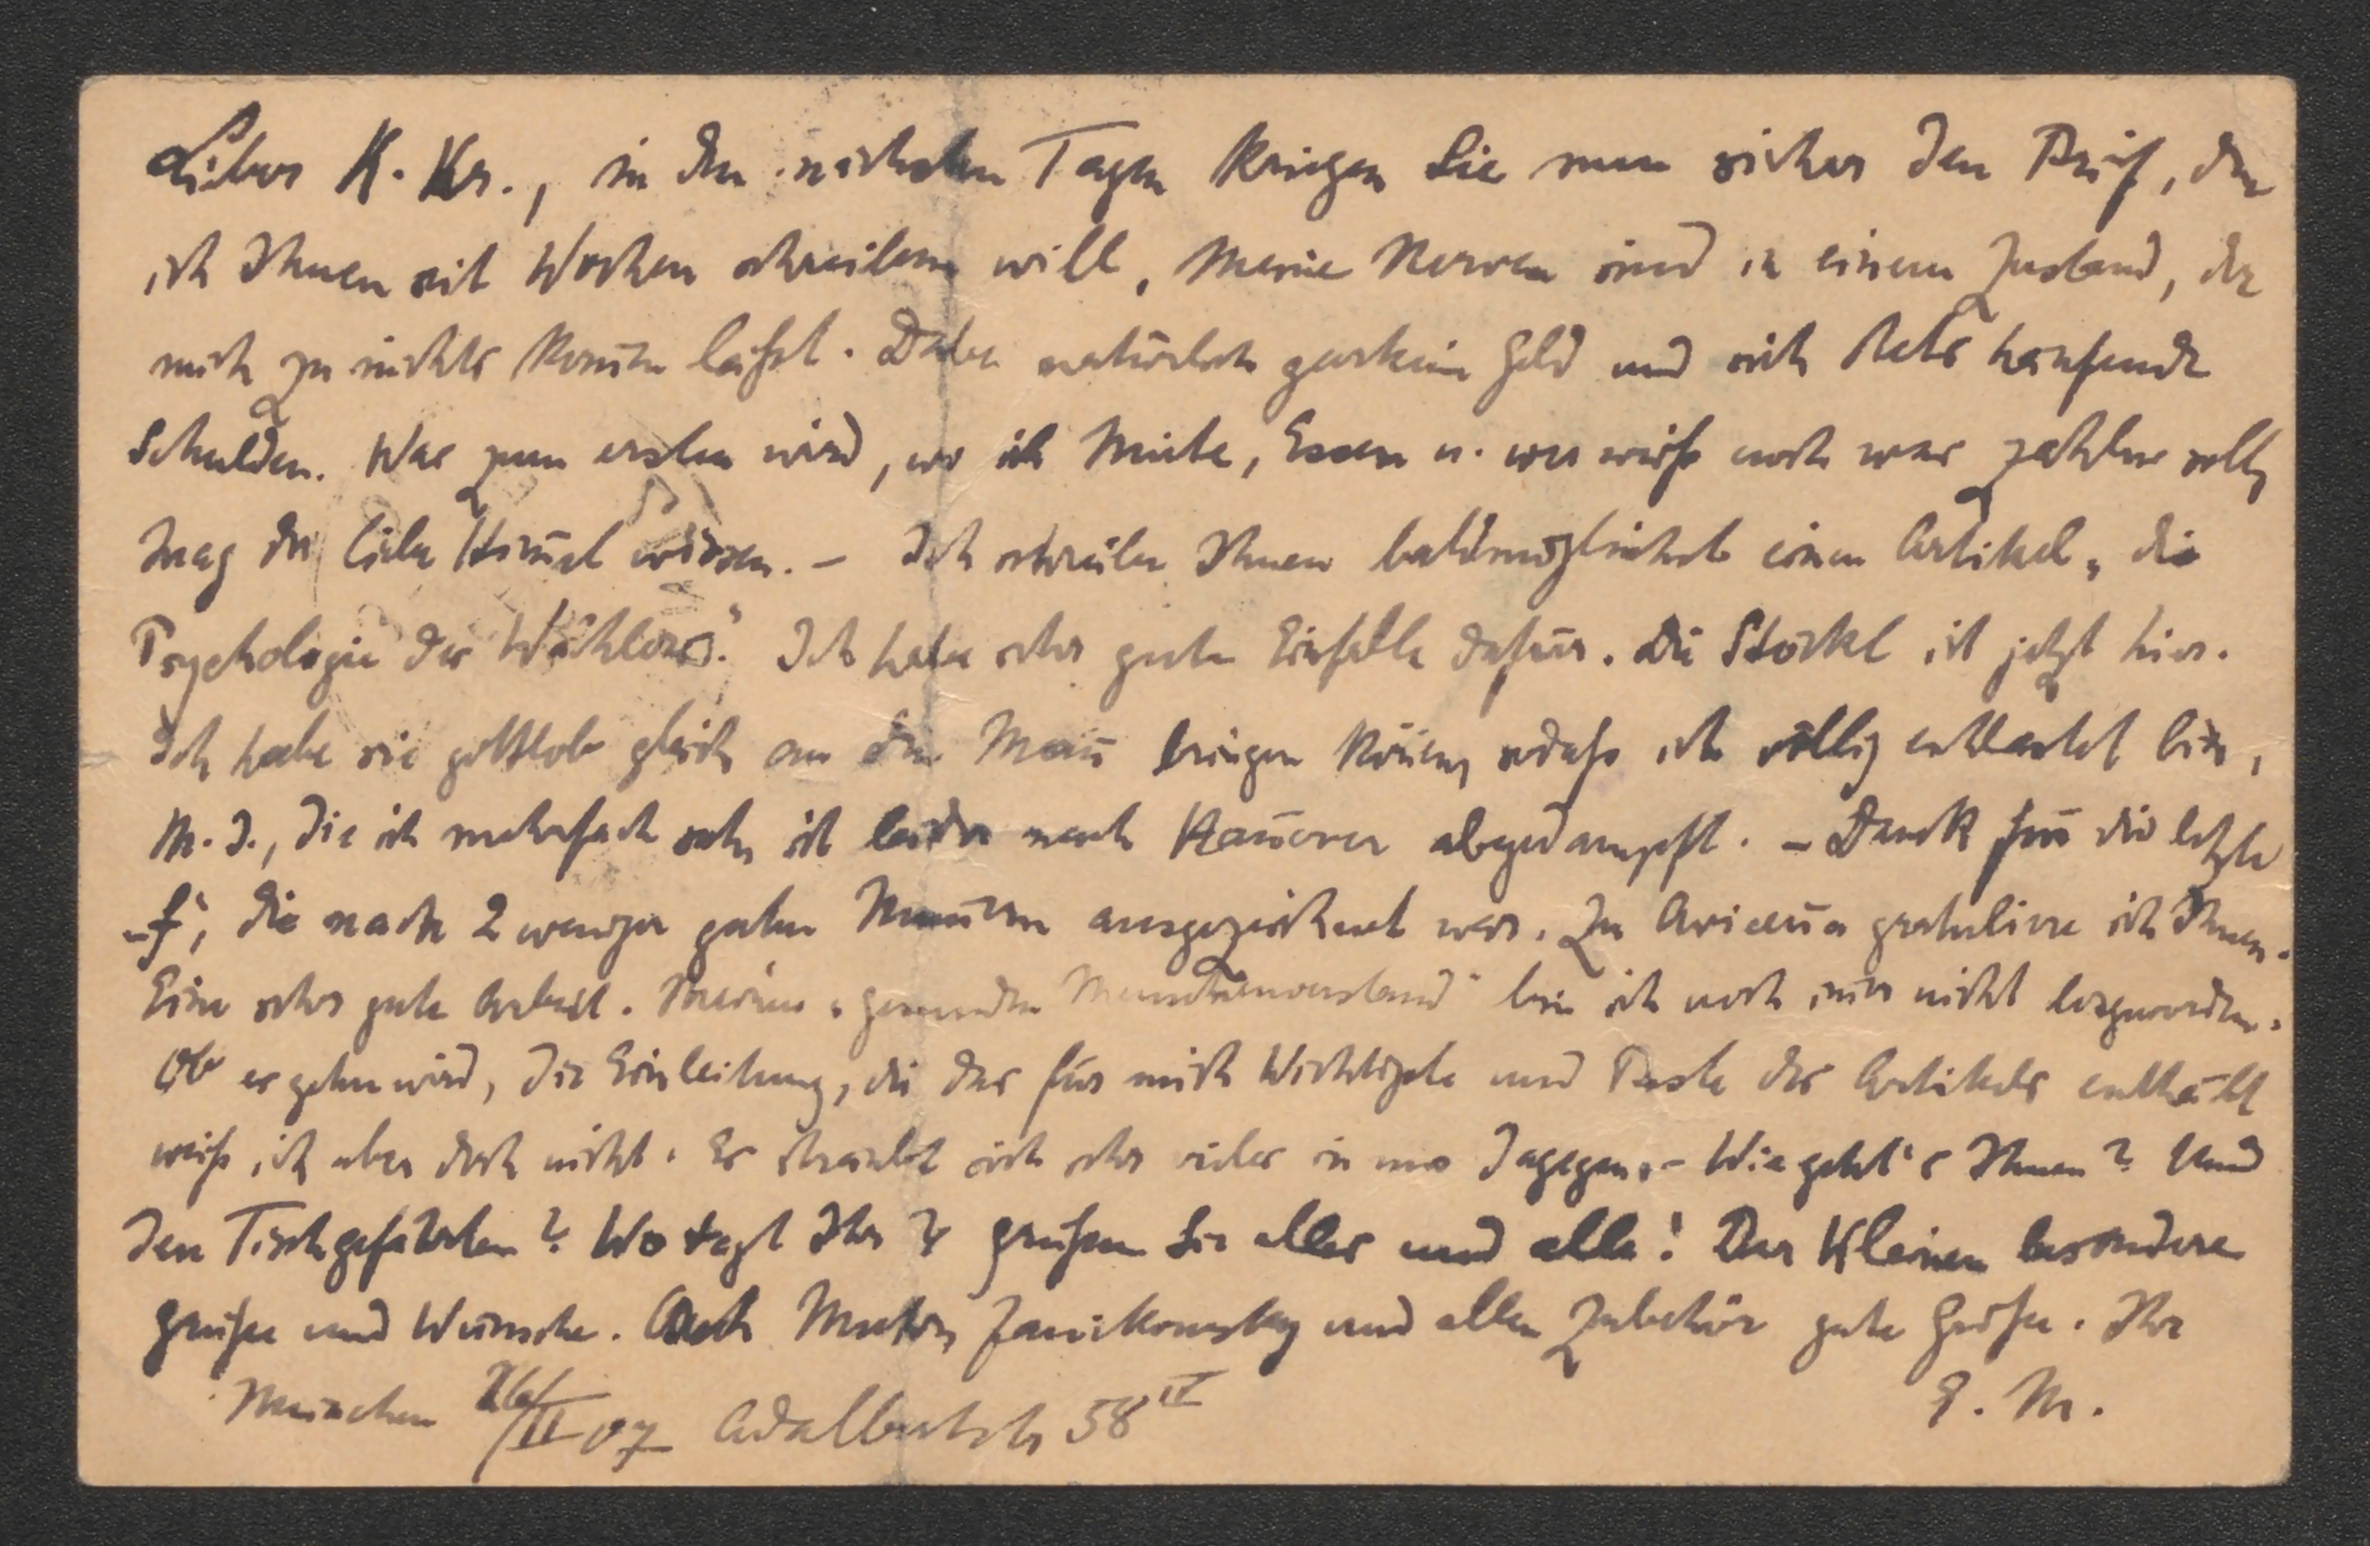 Lieber K. Kr., in den nächsten Tagen kriegen Sie nun sicher den Brief, den
ich Ihnen seit Wochen schreiben will. Meine Nerven sind in einem Zustand, der
mich zu nichts kom̅en läßt. Dabei natürlich garkein Geld und sich stets häufende
Schulden. Was zum ersten wird, wo ich Miete, Essen u. wer weiß noch was zahlen soll,
mag der liebe Him̅el wissen. – Ich schreibe Ihnen baldmöglichst einen Artikel „die
Psychologie des Wählers". Ich habe sehr gute Einfälle dafür. Die Stöckl ist jetzt hier.
Ich habe sie gottlob gleich an den Man̅ bringen kön̅en, sodaß ich völlig entlastet bin.
M. D., die ich mehrfach sah, ist leider nach Han̅over abgedampft. – Dank für die letzte
„f", die nach 2 weniger guten Num̅ern ausgezeichnet war. Zu Avicen̅a gratuliere ich Ihnen.
Eine sehr gute Arbeit. Meinen „gesunden Menschenverstand" bin ich noch im̅er nicht losgeworden.
Ob es gehn wird, die Einleitung, die das für mich Wichtigste und Beste des Artikels enthält
weiß ich aber doch nicht. Es sträubt sich sehr vieles in mir dagegen. – Wie geht's Ihnen? Und
den Tischgefährten? Wo tagt Ihr? Grüßen Sie alles und alle! Der Kleinen besondere
Grüße und Wünsche. Auch Mutter Janikowsky und allem Zubehör gute Grüße. Ihr
E. M.
München 26/II 07 Adalbertstr 58 IV